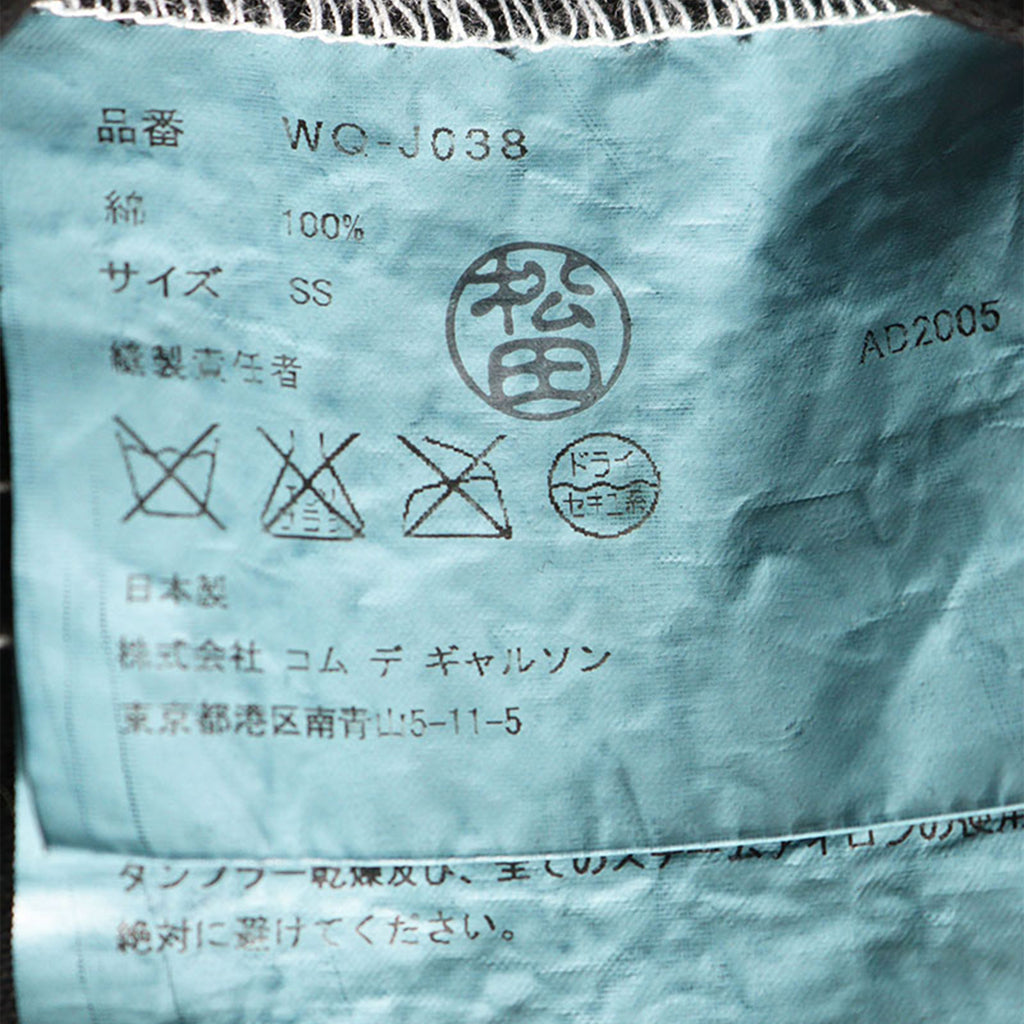 品番 WQ-J038
綿 100%
サイズ SS
縫製責任者
松田
AD2005
ドライ
セキユ系
日本製
株式会社 コム デ ギャルソン
東京都港区南青山5-11-5
タンブラー乾燥及び、全てのスチームアイロンの使用
絶対に避けてください。